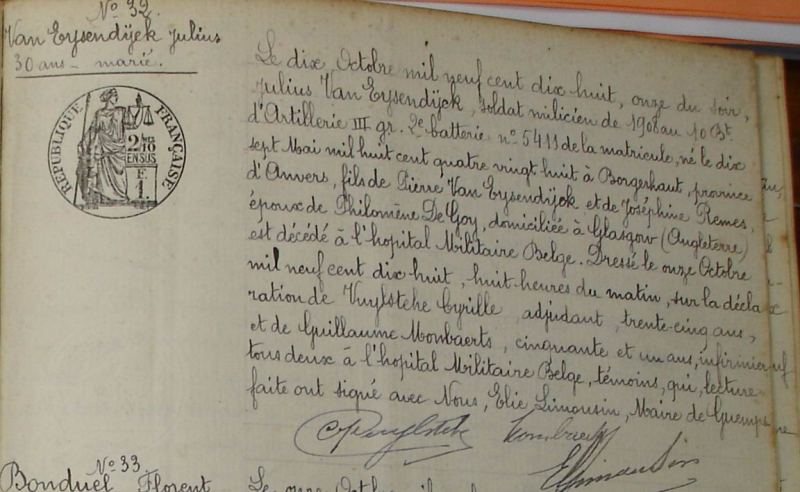 N° 32.
Van Eysendijck Julius
30 ans - marié.
RÉPUBLIQUE FRANÇAISE
2/10
EN SUS
F.
1.
Le dix Octobre mil neuf cent dix huit, onze du soir,
Julius Van Eysendijck, soldat milicien de 1908 au 10 Bt.
d'Artillerie III gr. 2e batterie n° 5411 de la matricule, né le dix
sept Mai mil huit cent quatre vingt huit à Borgerhaut, province
d'Anvers, fils de Pierre Van Eysendijck et de Joséphine Remes,
époux de Philomène De Goy, domiciliée à Glasgow (Angleterre)
est décédé à l'hopital Militaire Belge. Dressé le onze Octobre
mil neuf cent dix huit, huit heures du matin, sur la décla
ration de Vuylsteke Cyrille, adjudant, trente-cinq ans,
et de Guillaume Mombaerts, cinquante et un ans, infirmier
tous deux à l'hopital Militaire Belge, témoins, qui, lecture
faite ont signé avec Nous, Elie Limousin, Maire de Guemps
CVuylsteke
Mombaerts
ELimousin
N° 33.
Bonduel Florent
Le onze Octobre mil